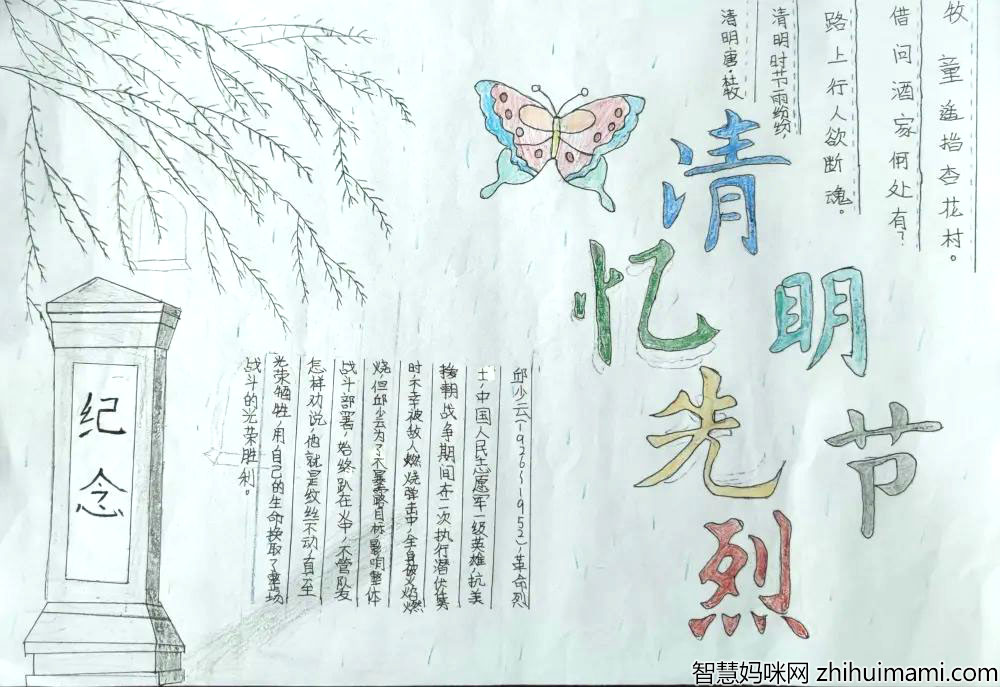 清明唐·杜牧
清明时节雨纷纷
路上行人欲断魂。
借问酒家何处有?
牧童遥指杏花村。
清明节
忆先烈
邱少云(1926~1952),革命烈
士,中国人民志愿军一级英雄,抗美
援朝战争期间在一次执行潜伏任务
时不幸被敌人燃烧弹击中,全身被火焰燃
烧,但邱少云为了不暴露目标,影响整体
战斗部署,始终趴在火中,不管队友
怎样劝说,他就是纹丝不动,直至
光荣牺牲,用自己的生命换取了整场
战斗的光荣胜利。
纪念
智慧妈咪网 zhihuimami.com